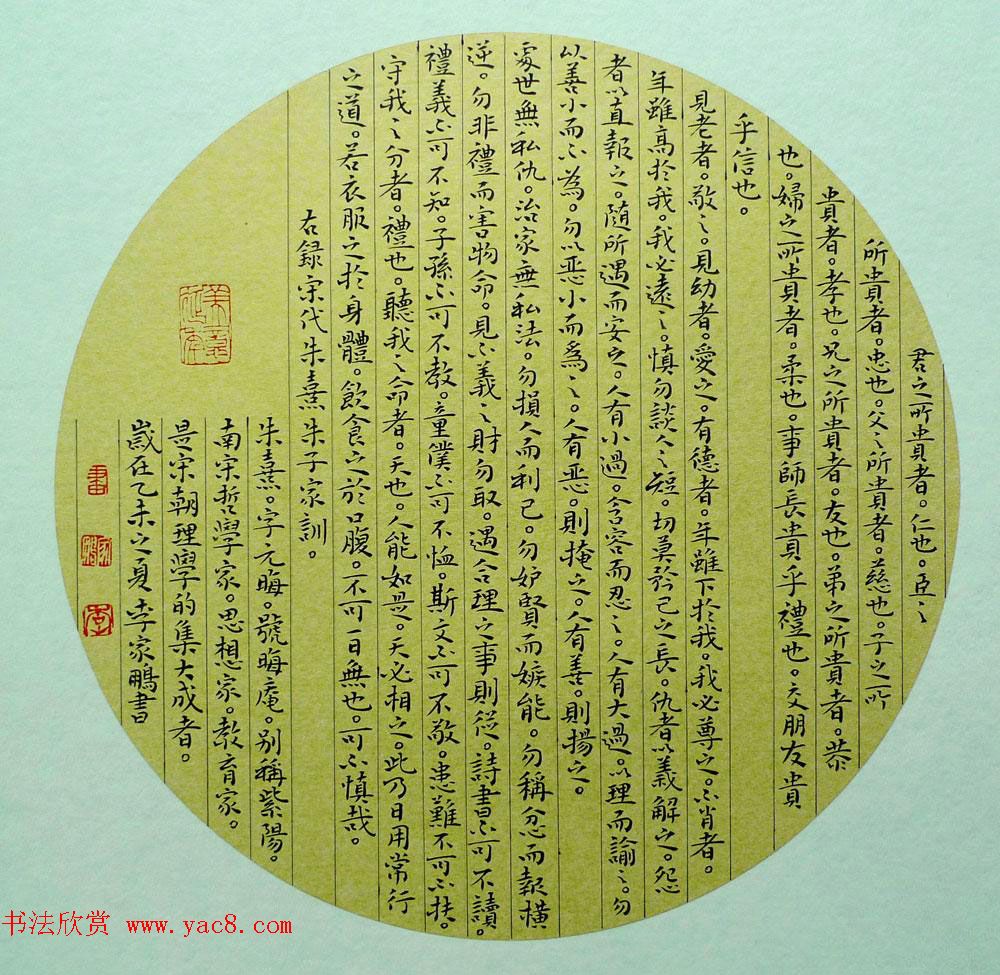 君之所貴者。仁也。臣之
所貴者。忠也。父之所貴者。慈也。子之所
貴者。孝也。兄之所貴者。友也。弟之所貴者。恭
也。婦之所貴者。柔也。事師長貴乎禮也。交朋友貴
乎信也。
見老者。敬之。見幼者。愛之。有德者。年雖下於我。我必尊之。不肖者。
年雖高於我。我必遠之。慎勿談人之短。切莫矜己之長。仇者以義解之。怨
者以直報之。隨所遇而安之。人有小過。含容而忍之。人有大過。以理而諭之。勿
以善小而不為。勿以惡小而為之。人有惡。則掩之。人有善。則揚之。
處世無私仇。治家無私法。勿損人而利己。勿妒賢而嫉能。勿稱忿而報橫
逆。勿非禮而害物命。見不義之財勿取。遇合理之事則從。詩書不可不讀。
禮義不可不知。子孫不可不教。童僕不可不恤。斯文不可不敬。患難不可不扶。
守我之分者。禮也。聽我之命者。天也。人能如是。天必相之。此乃日用常行
之道。若衣服之於身體。飲食之於口腹。不可一日無也。可不慎哉。
右録宋代朱熹朱子家訓。
朱熹。字元晦。號晦庵。别稱紫陽。
南宋哲學家。思想家。教育家。
是宋朝理學的集大成者。
歲在乙未之夏李家鵬書
書
李
书法欣赏 www.yac8.com